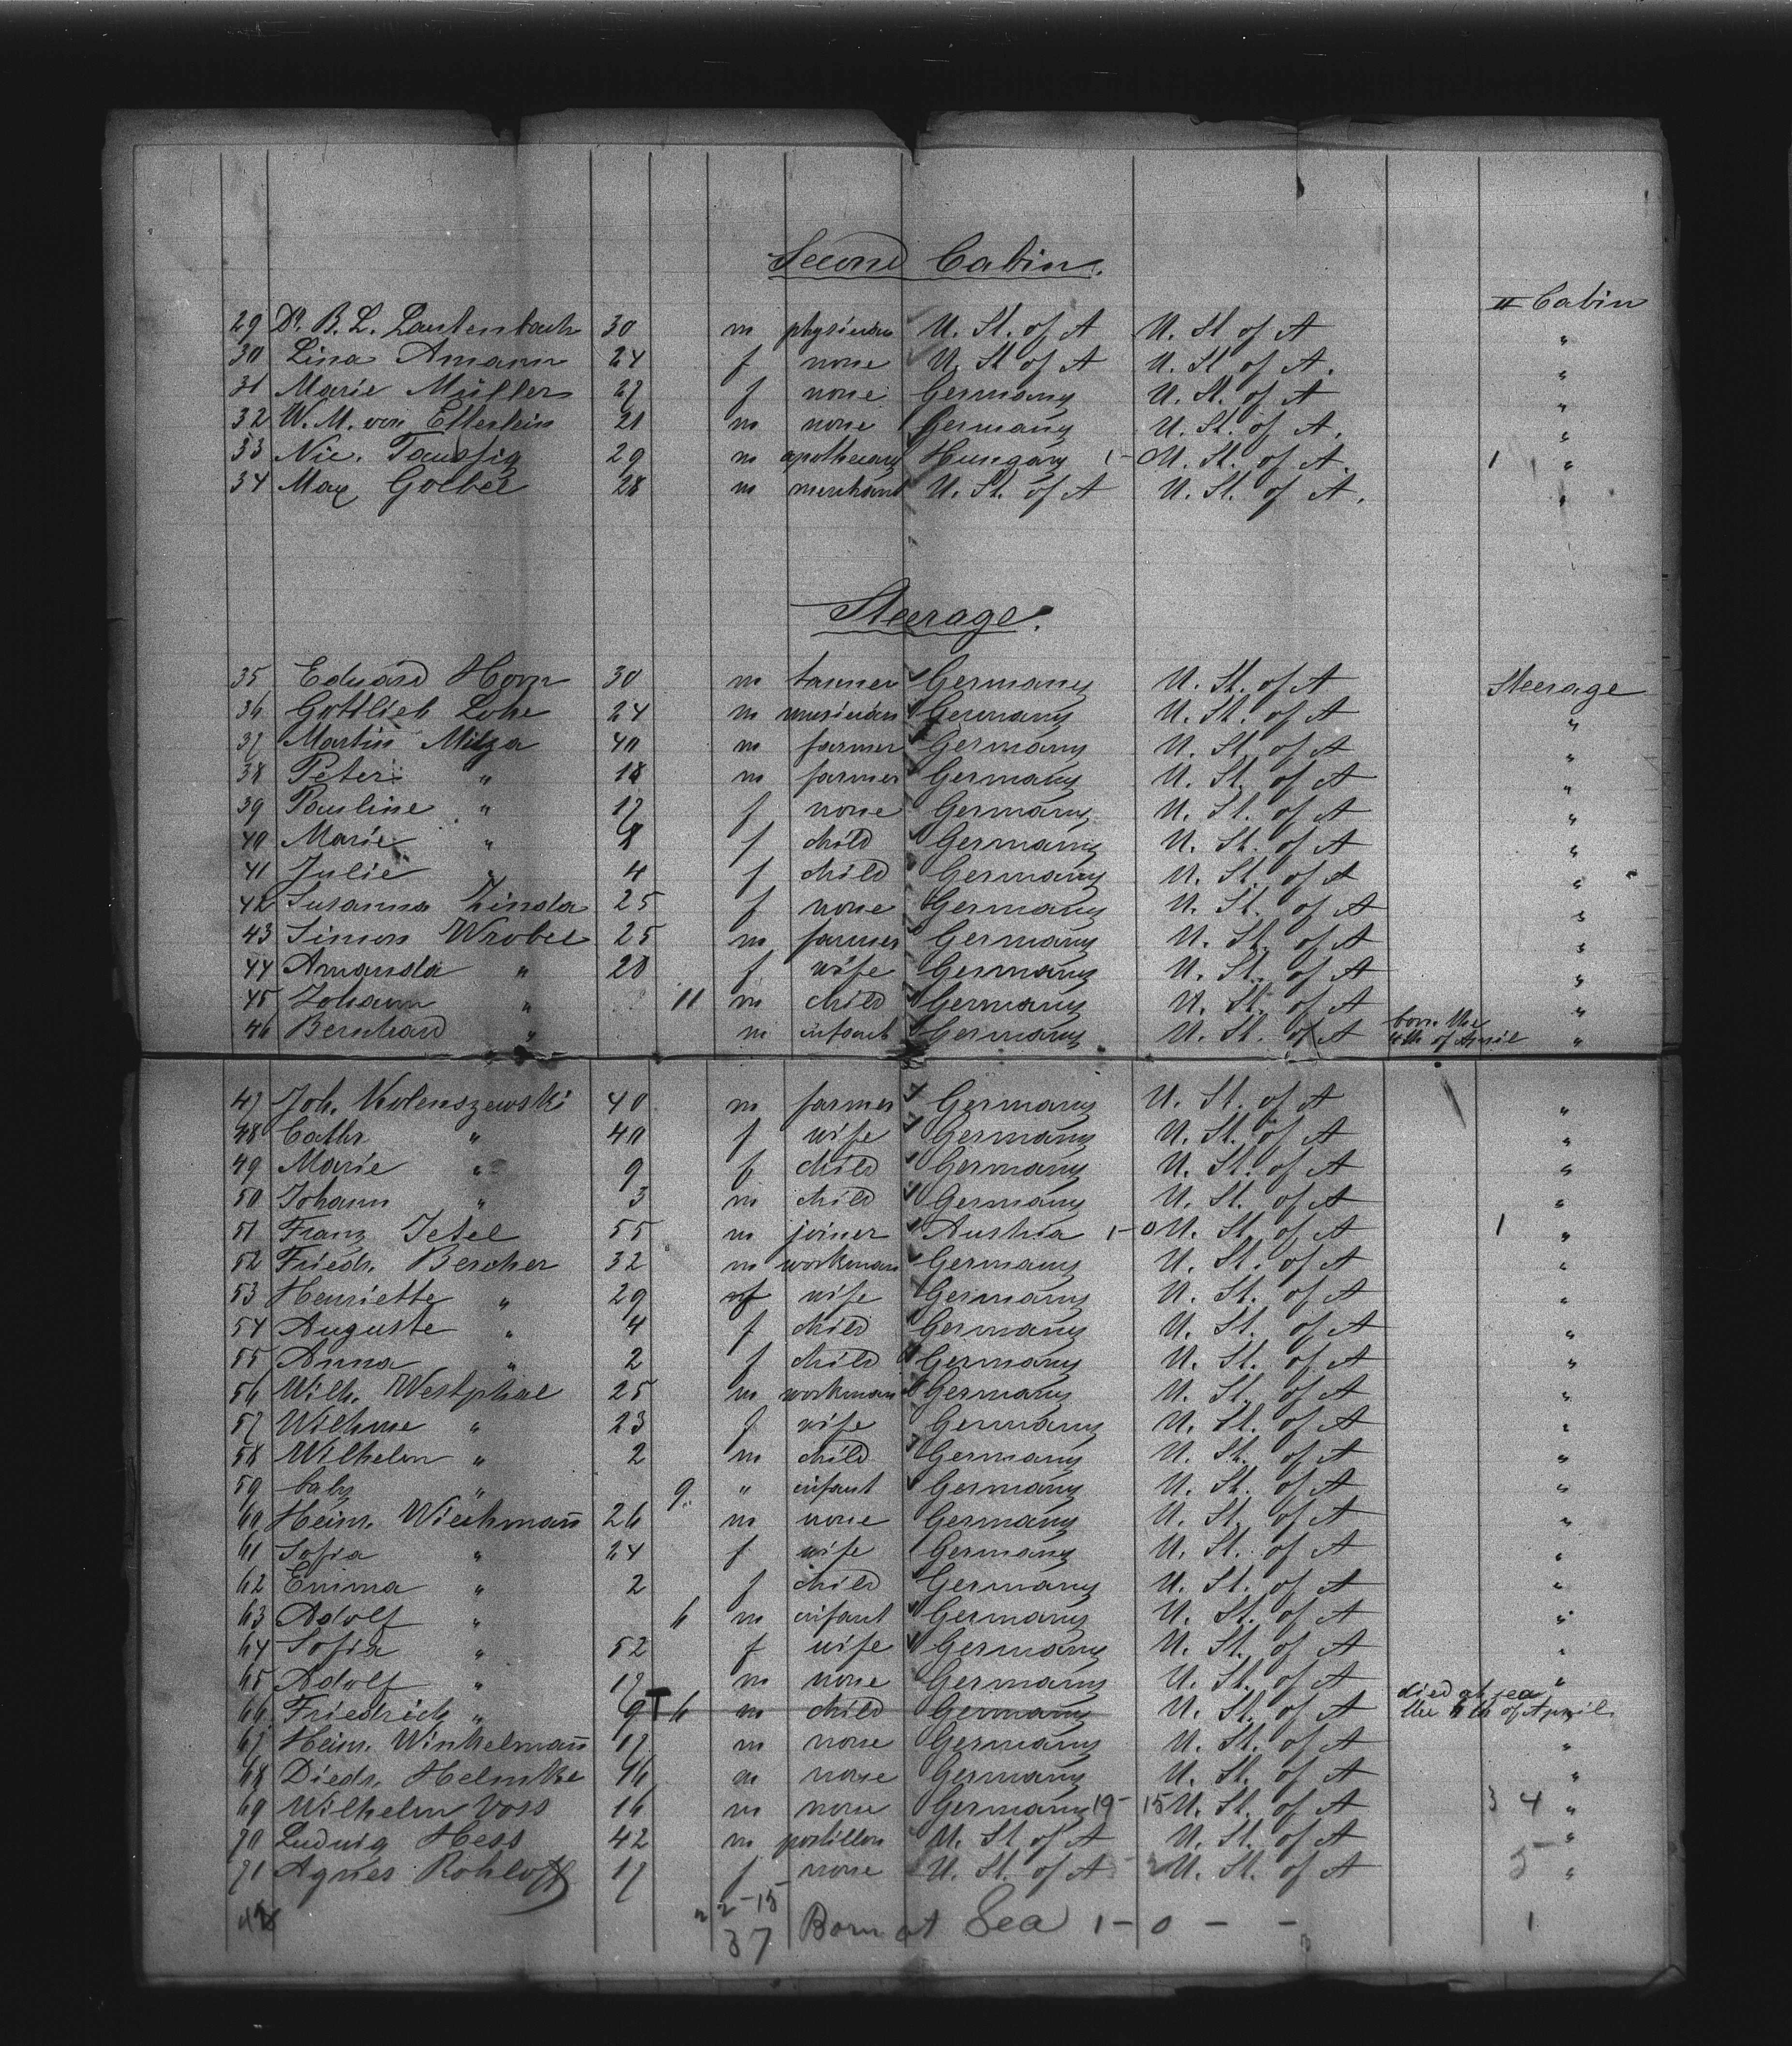 Second Cabin.
II Cabin
29 Dr. B. L. Lautenbach 30 m physician U. St. of A U. St. of A "
30 Lina Amann 24 f none U. St of A U. St. of A. "
31 Marie Müller 27 f none Germany U. St. of A "
32 W. M. von Elterlein 21 m none Germany U. St. of A. "
33 Nic. Taussig 29 m apothecary Hungary 1- 0 U. St. of A. 1 "
34 Max Goebel 28 m merchant U. St. of A U. St. of A. "
Steerage.
35 Eduard Horn 30 m tanner Germany U. St. of A Steerage
36 Gottlieb Lohe 24 m musician Germany U. St. of A "
37 Martin Milza 40 m farmer Germany U. St. of A "
38 Peter " 18 m farmer Germany U. St. of A "
39 Pauline " 17 f none Germany U. St. of A "
40 Marie " 8 f child Germany U. St. of A "
41 Julie " 4 f child Germany U. St. of A "
42 Susanna Zinda 25 f none Germany U. St. of A "
43 Simon Wrobel 25 m farmer Germany U. St. of A "
44 Amanda " 20 f wife Germany U. St. of A "
45 Johann " 11 m child Germany U. St. of A "
46 Bernhard " m infant Germany U. St. of A born the of April "
47 Joh. 40 m farmer Germany U. St. of A "
48 Cathr " 40 f wife Germany U. St. of A "
49 Marie " 9 f child Germany U. St. of A "
50 Johann " 3 m child Germany U. St. of A "
51 Franz Jesel 55 m joiner Austria 1- 0 U. St. of A 1 "
52 Friedr. Bercher 32 m workman Germany U. St. of A "
53 Henriette " 29 f wife Germany U. St. of A "
54 Auguste " 4 f child Germany U. St. of A "
55 Anna " 2 f child Germany U. St. of A "
56 Wilh. Westphal 25 m workman Germany U. St. of A "
57 Wilhme " 23 f wife Germany U. St. of A "
58 Wilhelm " 2 m child Germany U. St. of A "
59 baby " 9 " infant Germany U. St. of A "
60 Heinr. Wiechmann 26 m none Germany U. St. of A "
61 Sofia " 24 f wife Germany U. St. of A "
62 Emma " 2 f child Germany U. St. of A "
63 Adolf " 6 m infant Germany U. St. of A "
64 Sofia " 52 f wife Germany U. St. of A "
65 Adolf " 17 m none Germany U. St. of A "
66 Friedrich " 9 T 6 m child Germany U. St. of A died at sea the of April
67 Heinr. Winkelmann 17 m none Germany U. St. of A "
68 Diedr. Helmke 46 m none Germany U. St. of A "
69 Wilhelm Voss 16 m none Germany 19- 15 U. St. of A 34 "
70 Ludwig Hess 42 m postillon U. St of A U. St. of A "
71 Agnes Rohloff 17 f none U. St. of A U. St. of A 5 "
22-15
37 Born at Sea 1- 0 - - 1